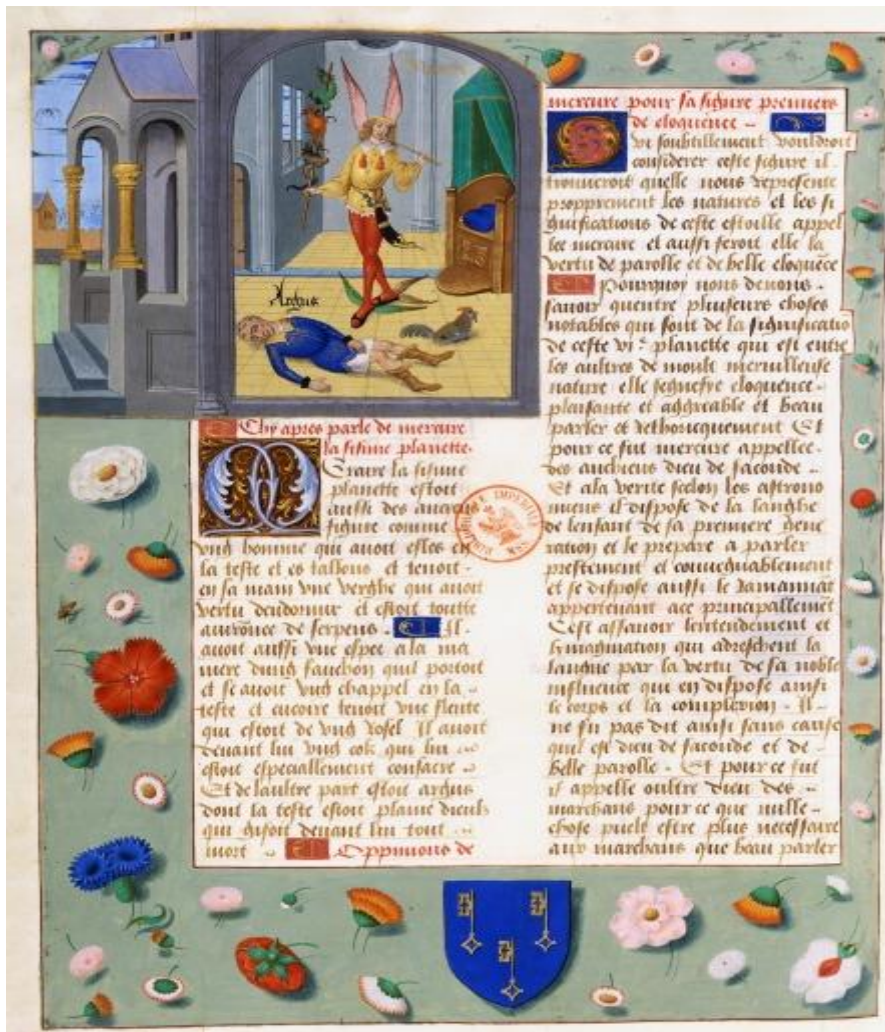 Argus
Chy apres parle de mercure
la sisime planette.
Ercure la sisime
planette estoit
aussi des anciens
figure comme
vng homme qui auoit esles en
la teste et es tallons et tenoit
en sa main vne verghe qui auoit
vertu dendormir et estoit toutte
de serpens. Il
auoit aussi vne espee a la ma
niere dung fauchon quil portoit
et si auoit vng chappel en la
teste et encoire tenoit vne fleute
qui estoit de vng rosel Il auoit
deuant lui vng cok qui lui
estoit especiallement consacre
Et de laultre part estoit argus
dont la teste estoit plaine dieulx
qui gisoit deuant lui tout
mort Oppinions de
mercure pour sa figure premiers
de eloquence
Qvi soubtillement vouldroit
considerer ceste figure il
trouueroit quelle nous represente
propprement les natures et les si
gnifications de ceste estoille appel
lee mercure et aussi seroit elle la
vertu de parolle et de belle eloquece
Pourquoy nous deuons
sauoir quentre pluiseurs choses
notables qui sont de la significatio
de ceste vi.e planette qui est entre
les aultres de moult merueilleuse
nature elle segnefie eloquence
plaisante et aggreable et beau
parler et rethoricquement Et
pour ce fut mercure appellee
des anchiens dieu de faconde
Et a la verite selon les astrono
miens il dispose de la langhe
de lenfant de sa premiere gene
ration et le prepare a parler
prestement et conuegnablement
et se dispose aussi le
appertenant a ce principallemet
Cest assauoir lentendement et
lymagination qui adreschent la
langue par la vertu de sa noble
influence qui en dispose ainsi
le corps et la complexion. Il
ne fu pas dit ainsi sans cause
quil est dieu de faconde et de
belle parolle. Et pour ce fut
il appelle oultre dieu des
marchans pour ce que nulle
chose puelt estre plus necessaire
aux marchans que beau parler
BIBLIOTHEQUE IMPERIALE
MSS.